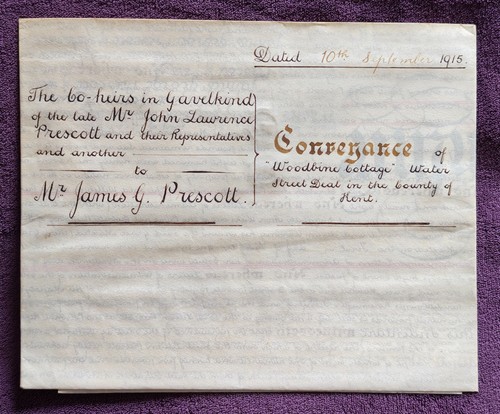 Dated 10th September 1915.
The Co-heirs in Gavelkind
of the late Mr. John Lawrence
Prescott and their Representatives
and another
to
Mr. James G. Prescott.
Conveyance of
"Woodbine Cottage" Water
Street Deal in the County of
Kent.